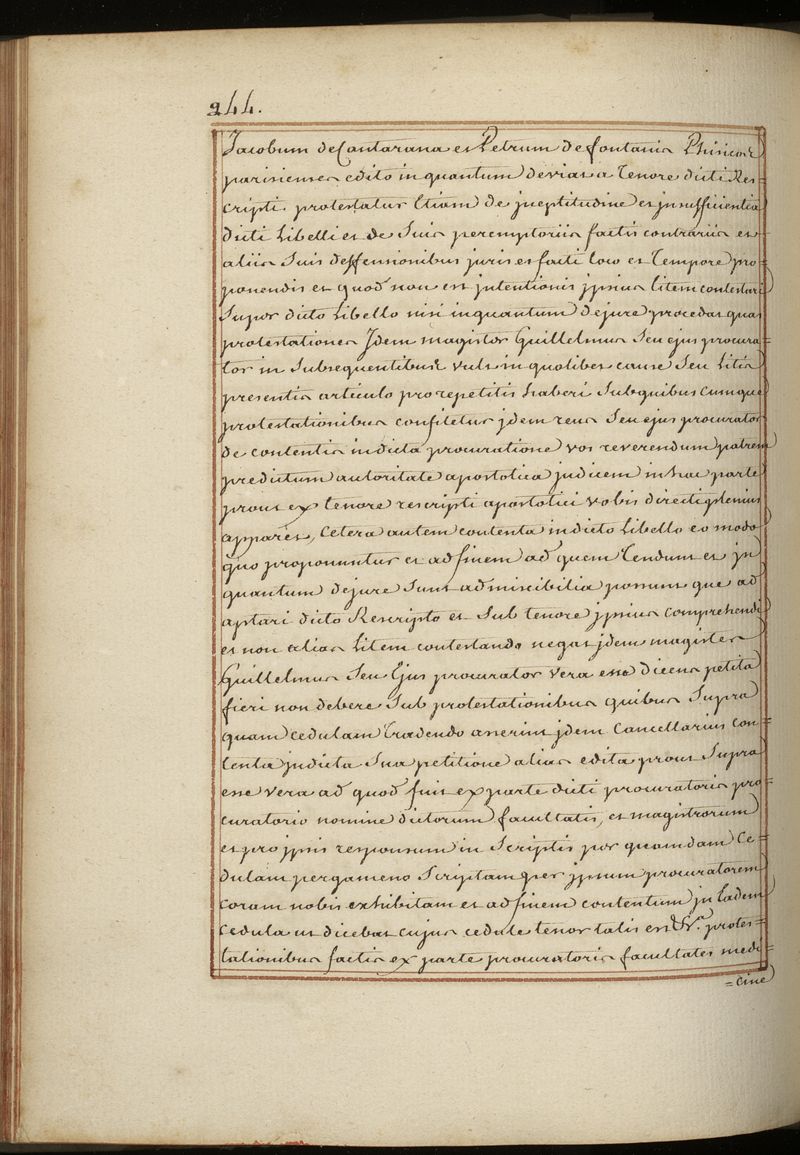 244.
Jacobum de Cantarana et Petrum de fontanis Phisicos
parisienses edito in quantum deviat a tenore dicti Res-
cripti. protestatur Etiam de jneptitudine et jnsufficientia
dicti Libelli et de Suis peremptoriis factis contrariis et
aliis Suis deffensionibus juris et facti loco et Tempore pro-
ponendis et quod non est jntentionis jpsius litem contestari
Super dicto Libello nisi inquantum dejure procedat quas
protestationes Jdem magister Guillelmus Seu ejus procura=
tor in Subsequentibus vult in quolibet cause Seu Litis
presentis articulo pro repetitis haberi Subquibuscumque
protestationibus confitetur jdem reus Seu ejus procurator
de contentis in dicta procuratione vos reverendum patrem
predictum autoritate apostolica judicem in hac parte
prout ex tenore rescripti apostolici vobis directi plenius
apparet, Cetera autem contenta indicto Libello eo modo
quo proponuntur et ad finem ad quem Tendunt et jn
quantum dejure Sunt admissibilia possunt que ad
aptari dicto Rescripto et Sub tenore jpsius comprehendi
et non alias Litem contestando negat jdem magister
Guillelmus Seu Ejus procurator vera esse dicens petita
fieri non debere Sub protestationibus quibus Supra
quam cedulam Tradendo asseruit jdem Cancellarius con=
tenta jndicta Sua petitione alias edita prout Supra
esse vera ad quod fuit ex parte dicti procuratoris pro
curatorio nomine dictorum facultatis, et magistrorum
et pro jpsis responsum in Scriptis per quamdam Ce=
dulam pergameno Scriptam per jpsum procuratorem
Coram nobis exhibitam et ad finem contentum jn Eadem
Cedula ut dicebat cujus cedule tenor talis est protes=
tationibus factis ex parte procuratoris facultatis medi=
=cine